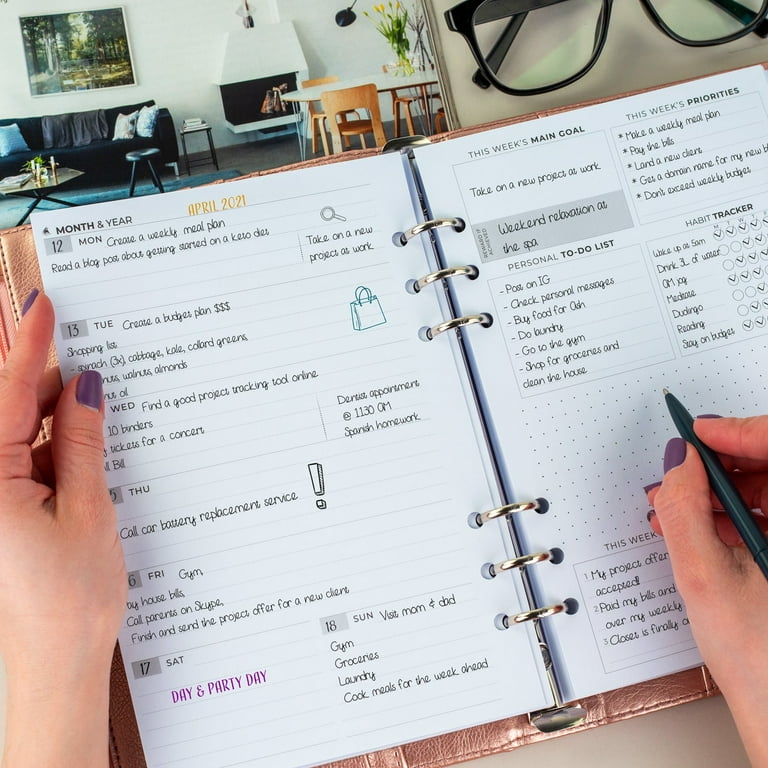 MONTH & YEAR APRIL 2021
12 MON Create a weekly meal plan
Read a blog post about getting started on a keto diet
Take on a new
project at work
13 TUE Create a budget plan $$$
Shopping list
- spinach (3x), cabbage, kale, collard greens,
walnuts, almonds
oil
WED Find a good project tracking tool online
10 binders
tickets for a concert
Bill
Dentist appointment
@ 11:30 AM
Spanish homework
THU
Call car battery replacement service
6 FRI Gym,
house bills,
Call parents on Skype,
Finish and send the project offer for a new client
17 SAT
DAY & PARTY DAY
18 SUN Visit mom & dad
Gym
Groceries
Laundry
Cook meals for the week ahead
THIS WEEK'S MAIN GOAL
Take on a new project at work
Weekend relaxation at
the spa
THIS WEEK'S PRIORITIES
* Make a weekly meal plan
* Pay the bills
* Land a new client
* Get a domain name for my new
* Don't exceed weekly budget
PERSONAL TO-DO LIST
- Post on IG
- Check personal messages
- Buy food for Ash
- Do laundry
- Go to the gym
- Shop for groceries and
clean the house
HABIT TRACKER
Wake up at 5am
Drink 3L of water
Meditate
Duolingo
Reading
Stay on budget
THIS WEEK
1 My project offer
accepted!
2 Paid my bills and
over my weekly
3 Closet is finally